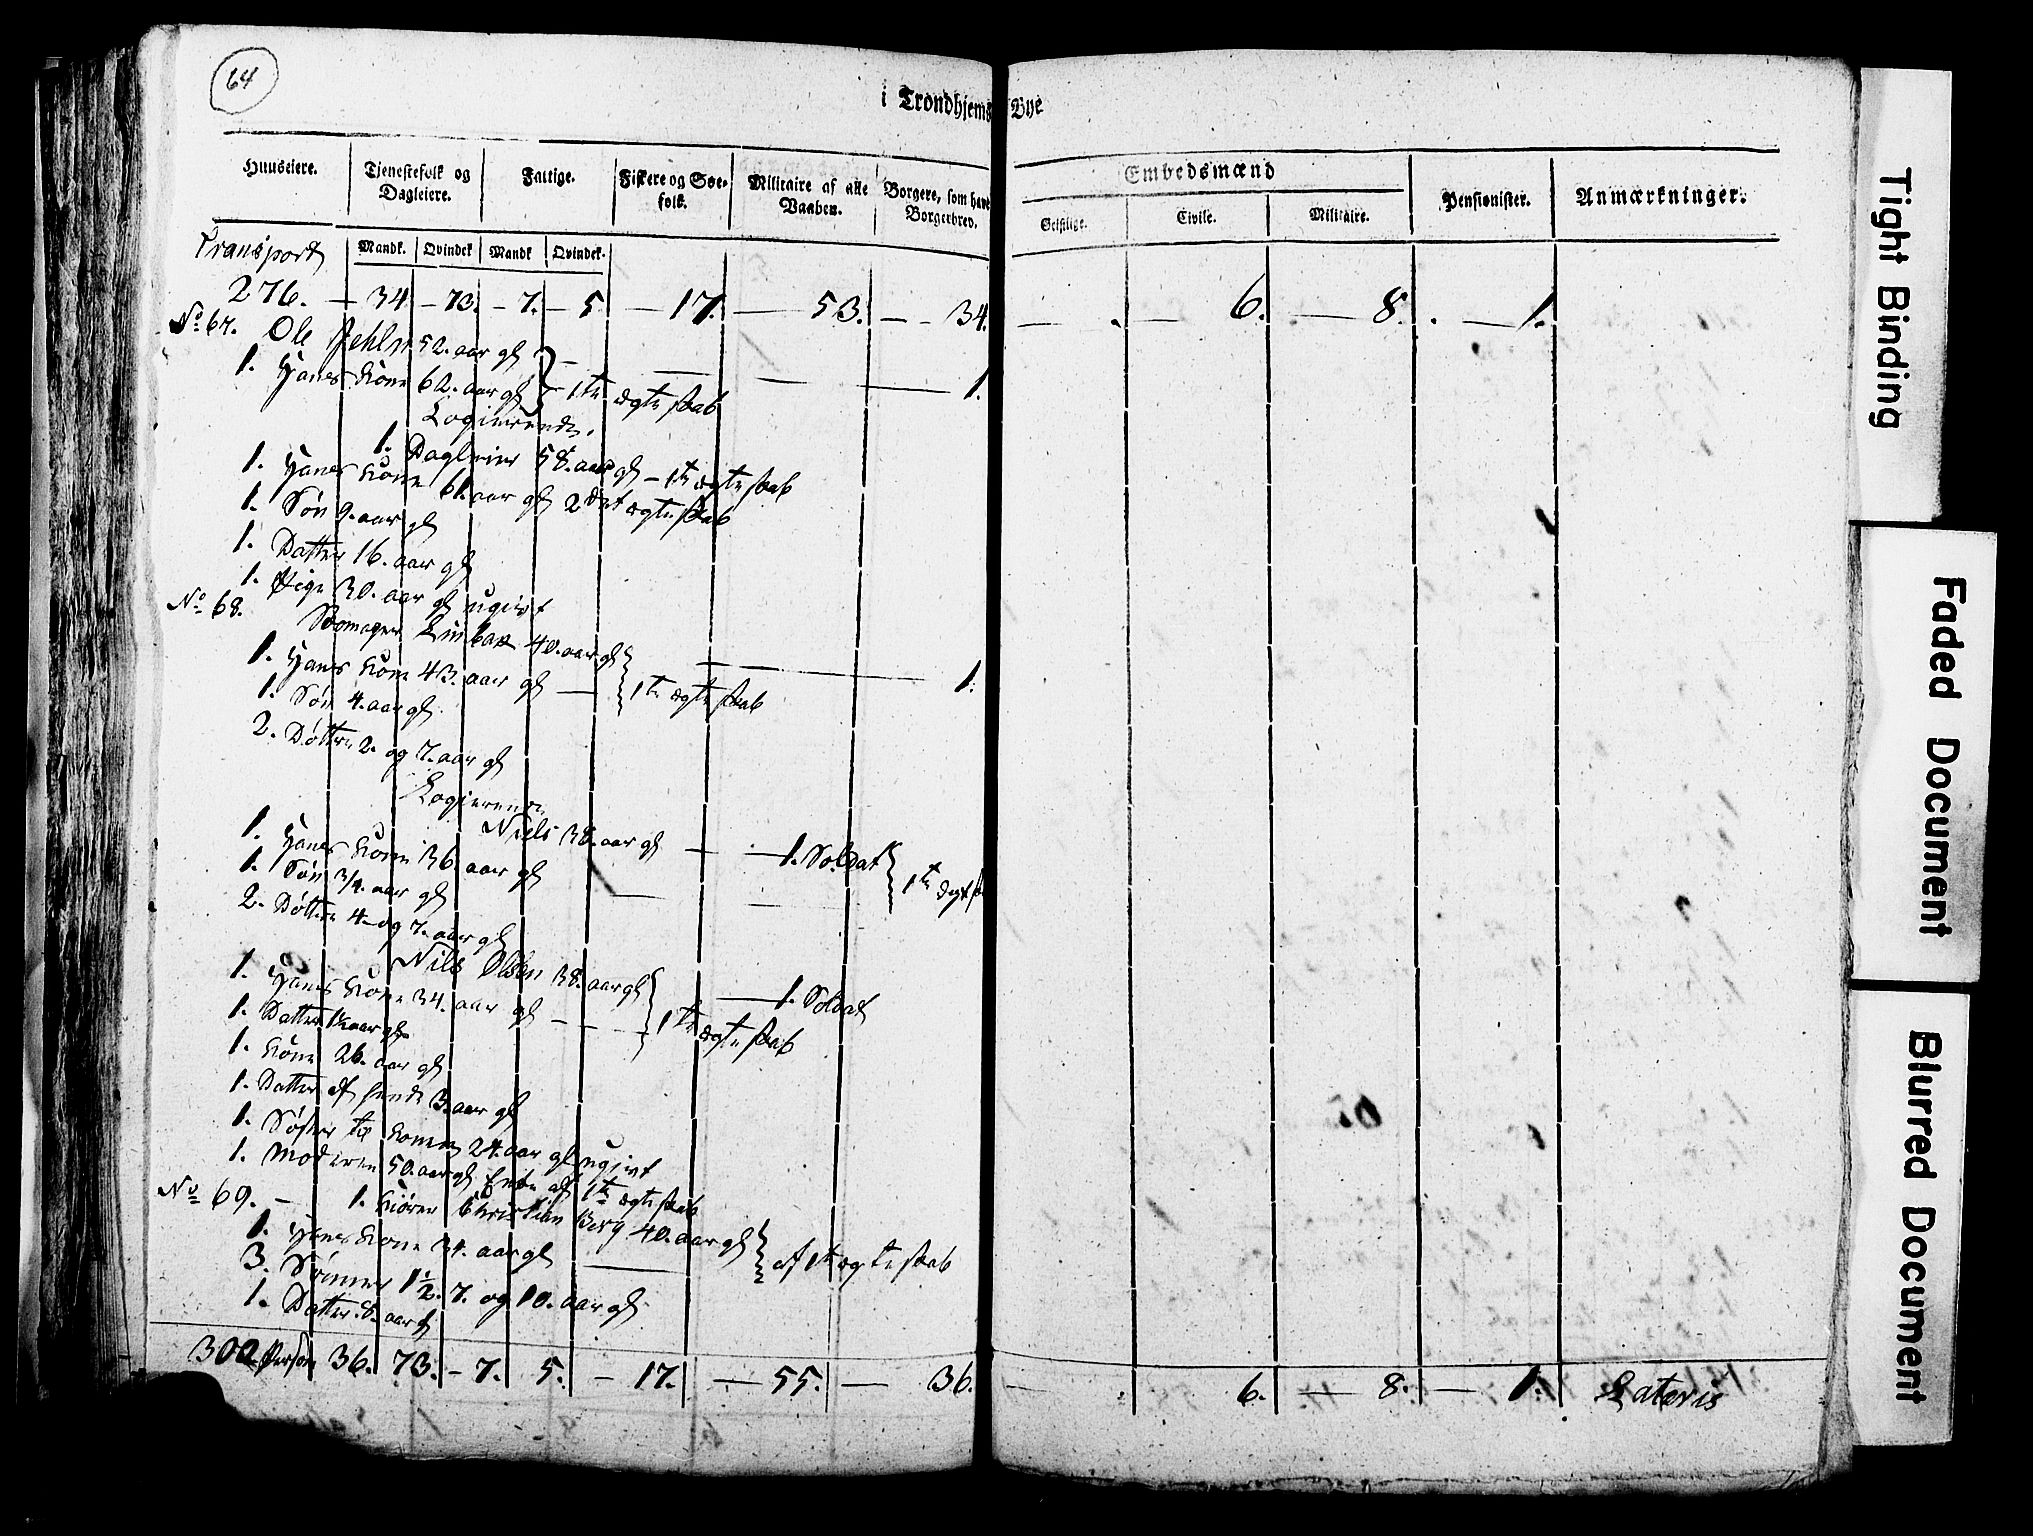 64
i Trondhjems Bye
Huuseiere. Tjenestefolk og Dagleiere. Fattige. Fiskere og Søe-folk. Militaire af alle Vaaben. Borgere, som have Borgerbrev. Embedsmænd Pensionister. Anmærkninger.
Geistlige. Civile. Militaire.
Mandk. Qvindek Mandk Qvindek.
Transport
276. — 34 — 73. — 7. — 5 — 17. — 53. — 34. — . — 6. — 8. . — 1.
No 67. Ole 52. aar gl
1. Hanes Kone 62. aar gl } 1te ægteskab — 1.
Logierende.
1. Dagleier 58. aar gl — 1te ægteskab
1. Hanes Kone 61. aar gl 2det ægteskab
1. Søn 9. aar gl
1. Datter 16. aar gl
1. Pige 30. aar gl ugivt
No 68. Skomager 40. aar gl
1. Hanes Kone 43. aar gl — } 1te ægteskab — 1.
1. Søn 4. aar gl.
2. Døttre 2. og 7. aar gl
Logierende
Niels 38. aar gl — 1. Soldat
1. Hanes Kone 36. aar gl — } 1te
1. Søn 3/4. aar gl
2. Døttre 4. og 7. aar gl
Nils Olsen 38. aar gl — 1. Soldat
1. Hanes Kone 34. aar gl — } 1te ægteskab
1. Datter 1½ aar gl
1. Kone 26. aar gl
1. Datter af hende 3. aar gl
1. Søster til Konen 24. aar gl ugivt
1. Moderen 50. aar gl Enke af 1te ægteskab
No 69. — 1. Kiører Christian Berg 40. aar gl
1. Hanes Kone 34. aar gl — } af 1te ægteskab
3. Sønner 1½. 7. og 10. aar gl
1. Datter 8. aar gl
302 Person 36. 73. — 7. 5. — 17. — 55. — 36. — . 6. — 8. — 1. Lateris
Tight Binding
Faded Document
Blurred Document